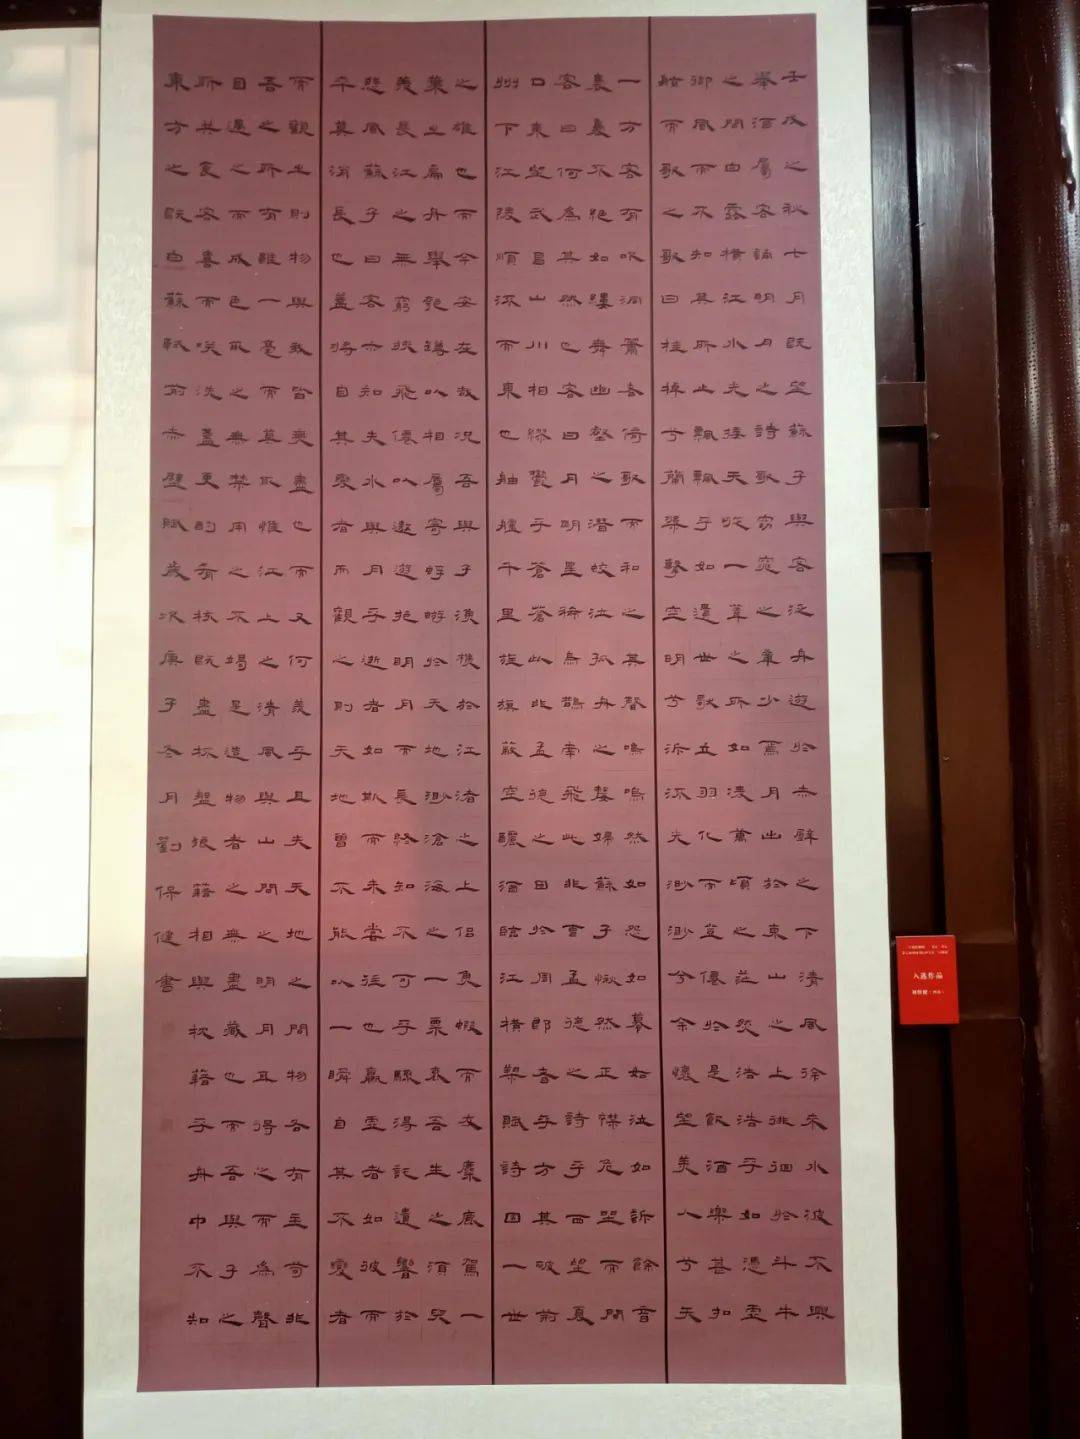 壬戌之秋七月既望蘇子與客泛舟遊於赤壁之下清風徐來水波不興
舉酒屬客誦明月之詩歌窈窕之章少焉月出於東山之上徘徊於斗牛
之間白露橫江水光接天縱一葦之所如凌萬頃之茫然浩浩乎如憑虛
御風而不知其所止飄飄乎如遺世獨立羽化而登僊於是飲酒樂甚扣
舷而歌之歌曰桂棹兮蘭槳擊空明兮泝流光渺渺兮余懷望美人兮天
一方客有吹洞簫者倚歌而和之其聲嗚嗚然如怨如慕如泣如訴餘音
裊裊不絕如縷舞幽壑之潛蛟泣孤舟之嫠婦蘇子愀然正襟危坐而問
客曰何為其然也客曰月明星稀烏鵲南飛此非曹孟德之詩乎西望夏
口東望武昌山川相繆鬱乎蒼蒼此非孟德之困於周郎者乎方其破荊
州下江陵順流而東也舳艫千里旌旗蔽空釃酒臨江橫槊賦詩固一世
之雄也而今安在哉況吾與子漁樵於江渚之上侶魚蝦而友麋鹿駕一
葉之扁舟舉匏樽以相屬寄蜉蝣於天地渺滄海之一粟哀吾生之須臾
羨長江之無窮挾飛僊以遨遊抱明月而長終知不可乎驟得託遺響於
悲風蘇子曰客亦知夫水與月乎逝者如斯而未嘗往也贏虛者如彼而
卒莫消長也蓋將自其變者而觀之則天地曾不能以一瞬自其不變者
而觀之則物與我皆無盡也而又何羨乎且夫天地之間物各有主苟非
吾之所有雖一毫而莫取惟江上之清風與山間之明月耳得之而為聲
目遇之而成色取之無禁用之不竭是造物者之無盡藏也而吾與子之
所共食客喜而笑洗盞更酌肴核既盡杯盤狼籍相與枕籍乎舟中不知
東方之既白蘇軾前赤壁賦歲次庚子冬月劉保健書
入选作品